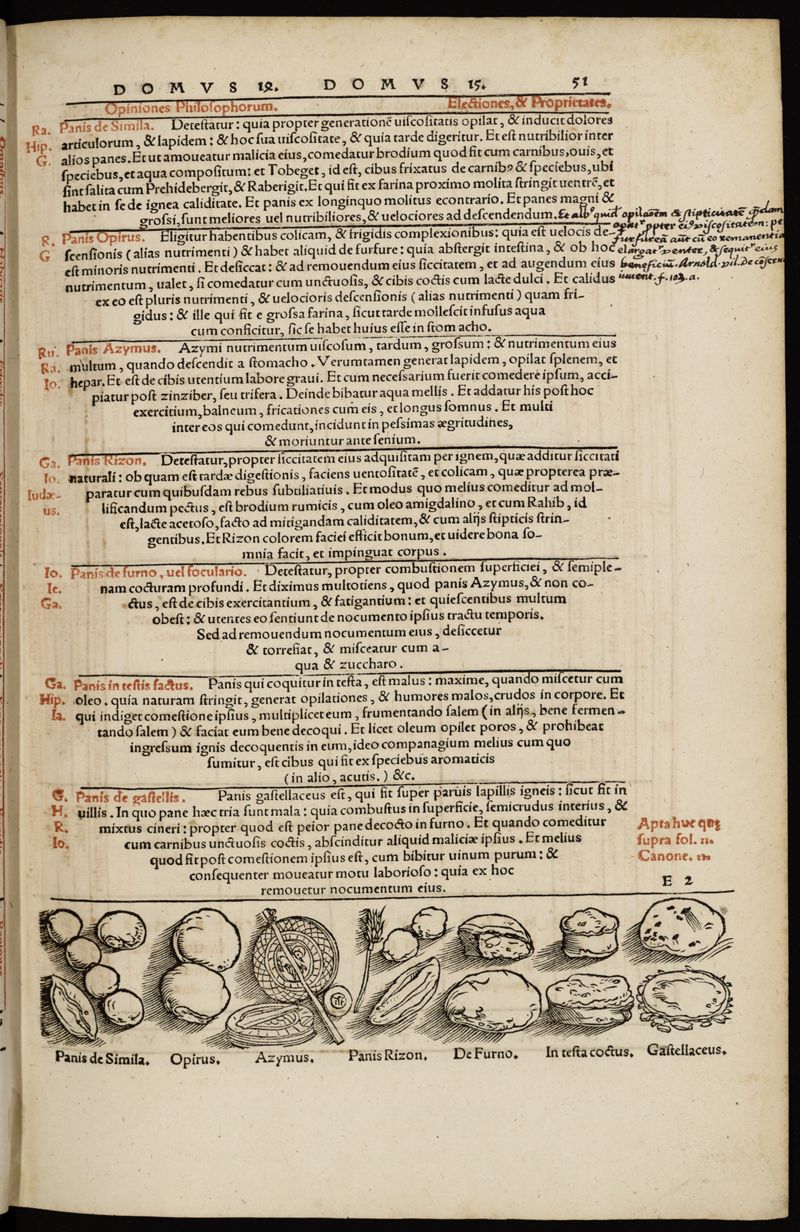 DOMVS 12. DOMVS 15. 51
Opiniones Philosophorum. Electiones, & Proprietates.
Ra. Panis de Simila. Detestatur: quia propter generationē uiscositatis opilat, & inducit dolores
Hip. articulorum, & lapidem: & hoc sua uiscositate, & quia tarde digeritur. Et est nutribilior inter
G. alios panes. Et ut amoueatur malicia eius, comedatur brodium quod fit cum carnibus, ouis, et
speciebus, et aqua compositum: et Tobeget, id est, cibus frixatus de carnibꝰ & speciebus, ubi
sint salita cum Prehidebergit, & Raberigit. Et qui fit ex farina proximo molita stringit uentrē, et
habet in se de ignea caliditate. Et panis ex longinquo molitus econtrario. Et panes magni &
grossi, sunt meliores uel nutribiliores, & uelociores ad descendendum.
R. Panis Opirus. Eligitur habentibus colicam, & frigidis complexionibus: quia est uelocis de-
G scensionis (alias nutrimenti) & habet aliquid de furfure: quia abstergit intestina, & ob hoc
est minoris nutrimenti. Et desiccat: & ad remouendum eius siccitatem, et ad augendum eius
nutrimentum, ualet, si comedatur cum unctuosis, & cibis coctis cum lacte dulci. Et calidus
ex eo est pluris nutrimenti, & uelocioris descensionis (alias nutrimenti) quam fri-
gidus: & ille qui fit e grossa farina, sicut tarde mollescit infusus aqua
cum conficitur, sic se habet huius esse in stomacho.
Ru. Panis Azymus. Azymi nutrimentum uiscosum, tardum, grossum: & nutrimentum eius
Ra. multum, quando descendit a stomacho. Verumtamen generat lapidem, opilat splenem, et
Io. hepar. Et est de cibis utentium labore graui. Et cum necessarium fuerit comedere ipsum, acci-
piatur post zinziber, seu trifera. Deinde bibatur aqua mellis. Et addatur his post hoc
exercitium, balneum, fricationes cum eis, et longus somnus. Et multi
inter eos qui comedunt, incidunt in pessimas ægritudines,
& moriuntur ante senium.
Ga. Panis Rizon. Detestatur, propter siccitatem eius adquisitam per ignem, quæ additur siccitati
Io. naturali: ob quam est tardæ digestionis, faciens uentositatē, et colicam, quæ propterea præ-
Iudæ- paratur cum quibusdam rebus subtiliatiuis. Et modus quo melius comeditur ad mol-
us. lificandum pectus, est brodium rumicis, cum oleo amigdalino, et cum Rahib, id
est, lacte acetoso, facto ad mitigandam caliditatem, & cum alijs stipticis strin-
gentibus. Et Rizon colorem faciei efficit bonum, et uidere bona so-
mnia facit, et impinguat corpus.
Io. Panis de furno, uel foculario. Detestatur, propter combustionem superficiei, & semiple-
Ie. nam cocturam profundi. Et diximus multotiens, quod panis Azymus, & non co-
Ga. ctus, est de cibis exercitantium, & fatigantium: et quiescentibus multum
obest: & utentes eo sentiunt de nocumento ipsius tractu temporis.
Sed ad remouendum nocumentum eius, desiccetur
& torrefiat, & misceatur cum a-
qua & zuccharo.
Ga. Panis in testis factus. Panis qui coquitur in testa, est malus: maxime, quando miscetur cum
Hip. oleo. quia naturam stringit, generat opilationes, & humores malos, crudos in corpore. Et
Ia. qui indiget comestione ipsius, multiplicet eum, frumentando salem (in alijs, bene fermen-
tando salem) & faciat eum bene decoqui. Et licet oleum opilet poros, & prohibeat
ingressum ignis decoquentis in eum, ideo companagium melius cum quo
sumitur, est cibus qui fit ex speciebus aromaticis
(in alio, acutis.) &c.
G. Panis de gastellis. Panis gastellaceus est, qui fit super paruis lapillis igneis: sicut fit in
H. uillis. In quo pane hæc tria sunt mala: quia combustus in superficie, semicrudus interius, &
R. mixtus cineri: propter quod est peior pane decocto in furno. Et quando comeditur
Io. cum carnibus unctuosis coctis, abscinditur aliquid maliciæ ipsius. Et melius
quod fit post comestionem ipsius est, cum bibitur uinum purum: &
consequenter moueatur motu laborioso: quia ex hoc
remouetur nocumentum eius.
supra fol. 11.
Canone.
E 2
Panis de Simila. Opirus. Azymus. Panis Rizon. De Furno. In testa coctus. Gastellaceus.